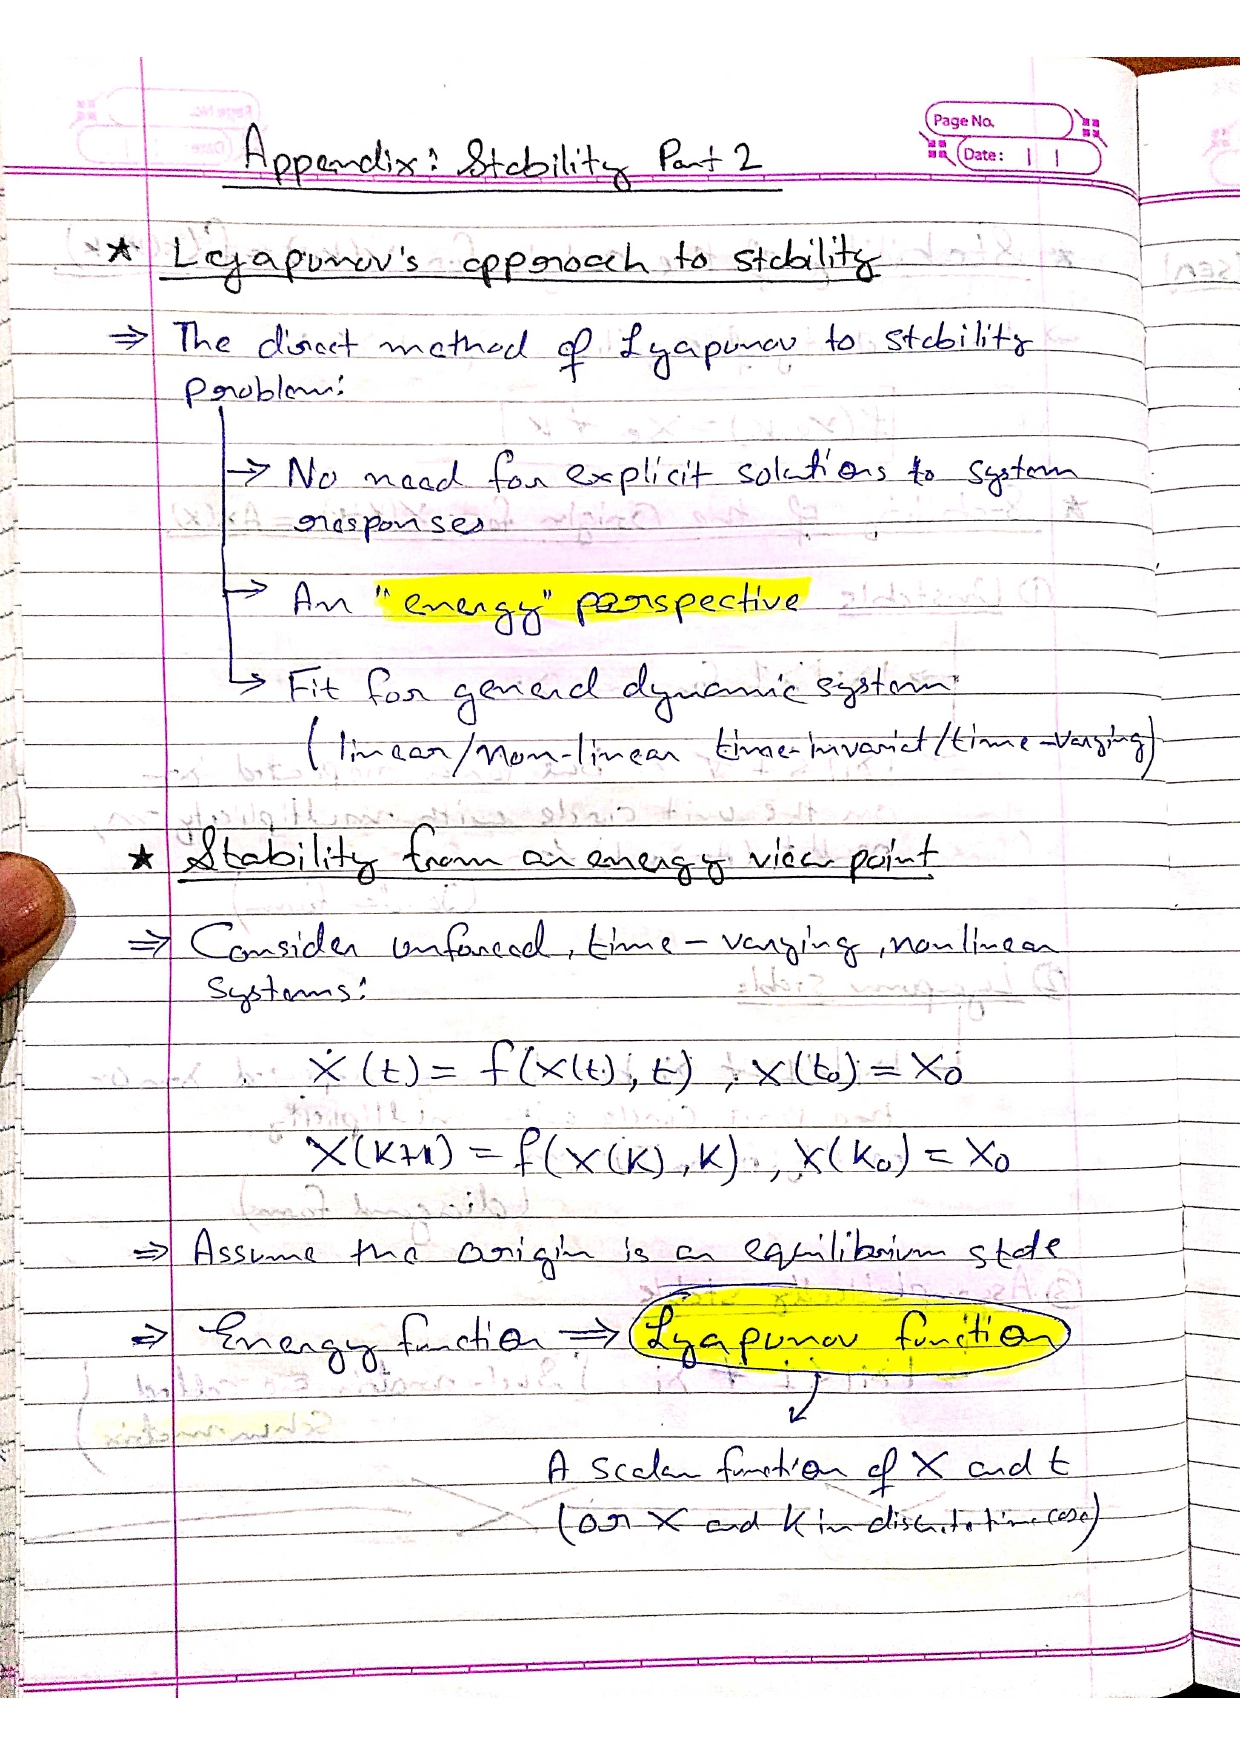 Page No.
Date: | |
Appendix: Stability Part 2
★ Lyapunov's approach to stability
⇒ The direct method of Lyapunov to stability
problem:
→ No need for explicit solutions to system
responses
→ An "energy" perspective
→ Fit for general dynamic system
(linear/non-linear time-invariat/time-varying)
★ Stability from an energy view point
⇒ Consider unforced, time-varying, nonlinear
systems:
ẋ(t) = f(x(t), t), x(t₀) = x₀
x(k+1) = f(x(k), k), x(k₀) = x₀
⇒ Assume the origin is an equilibrium state
⇒ Energy function ⇒ Lyapunov function
A scalar function of x and t
(or x and k in discrete time case)